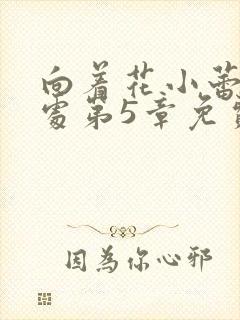 向着花小蕾
处第5章免费
因為你心邪